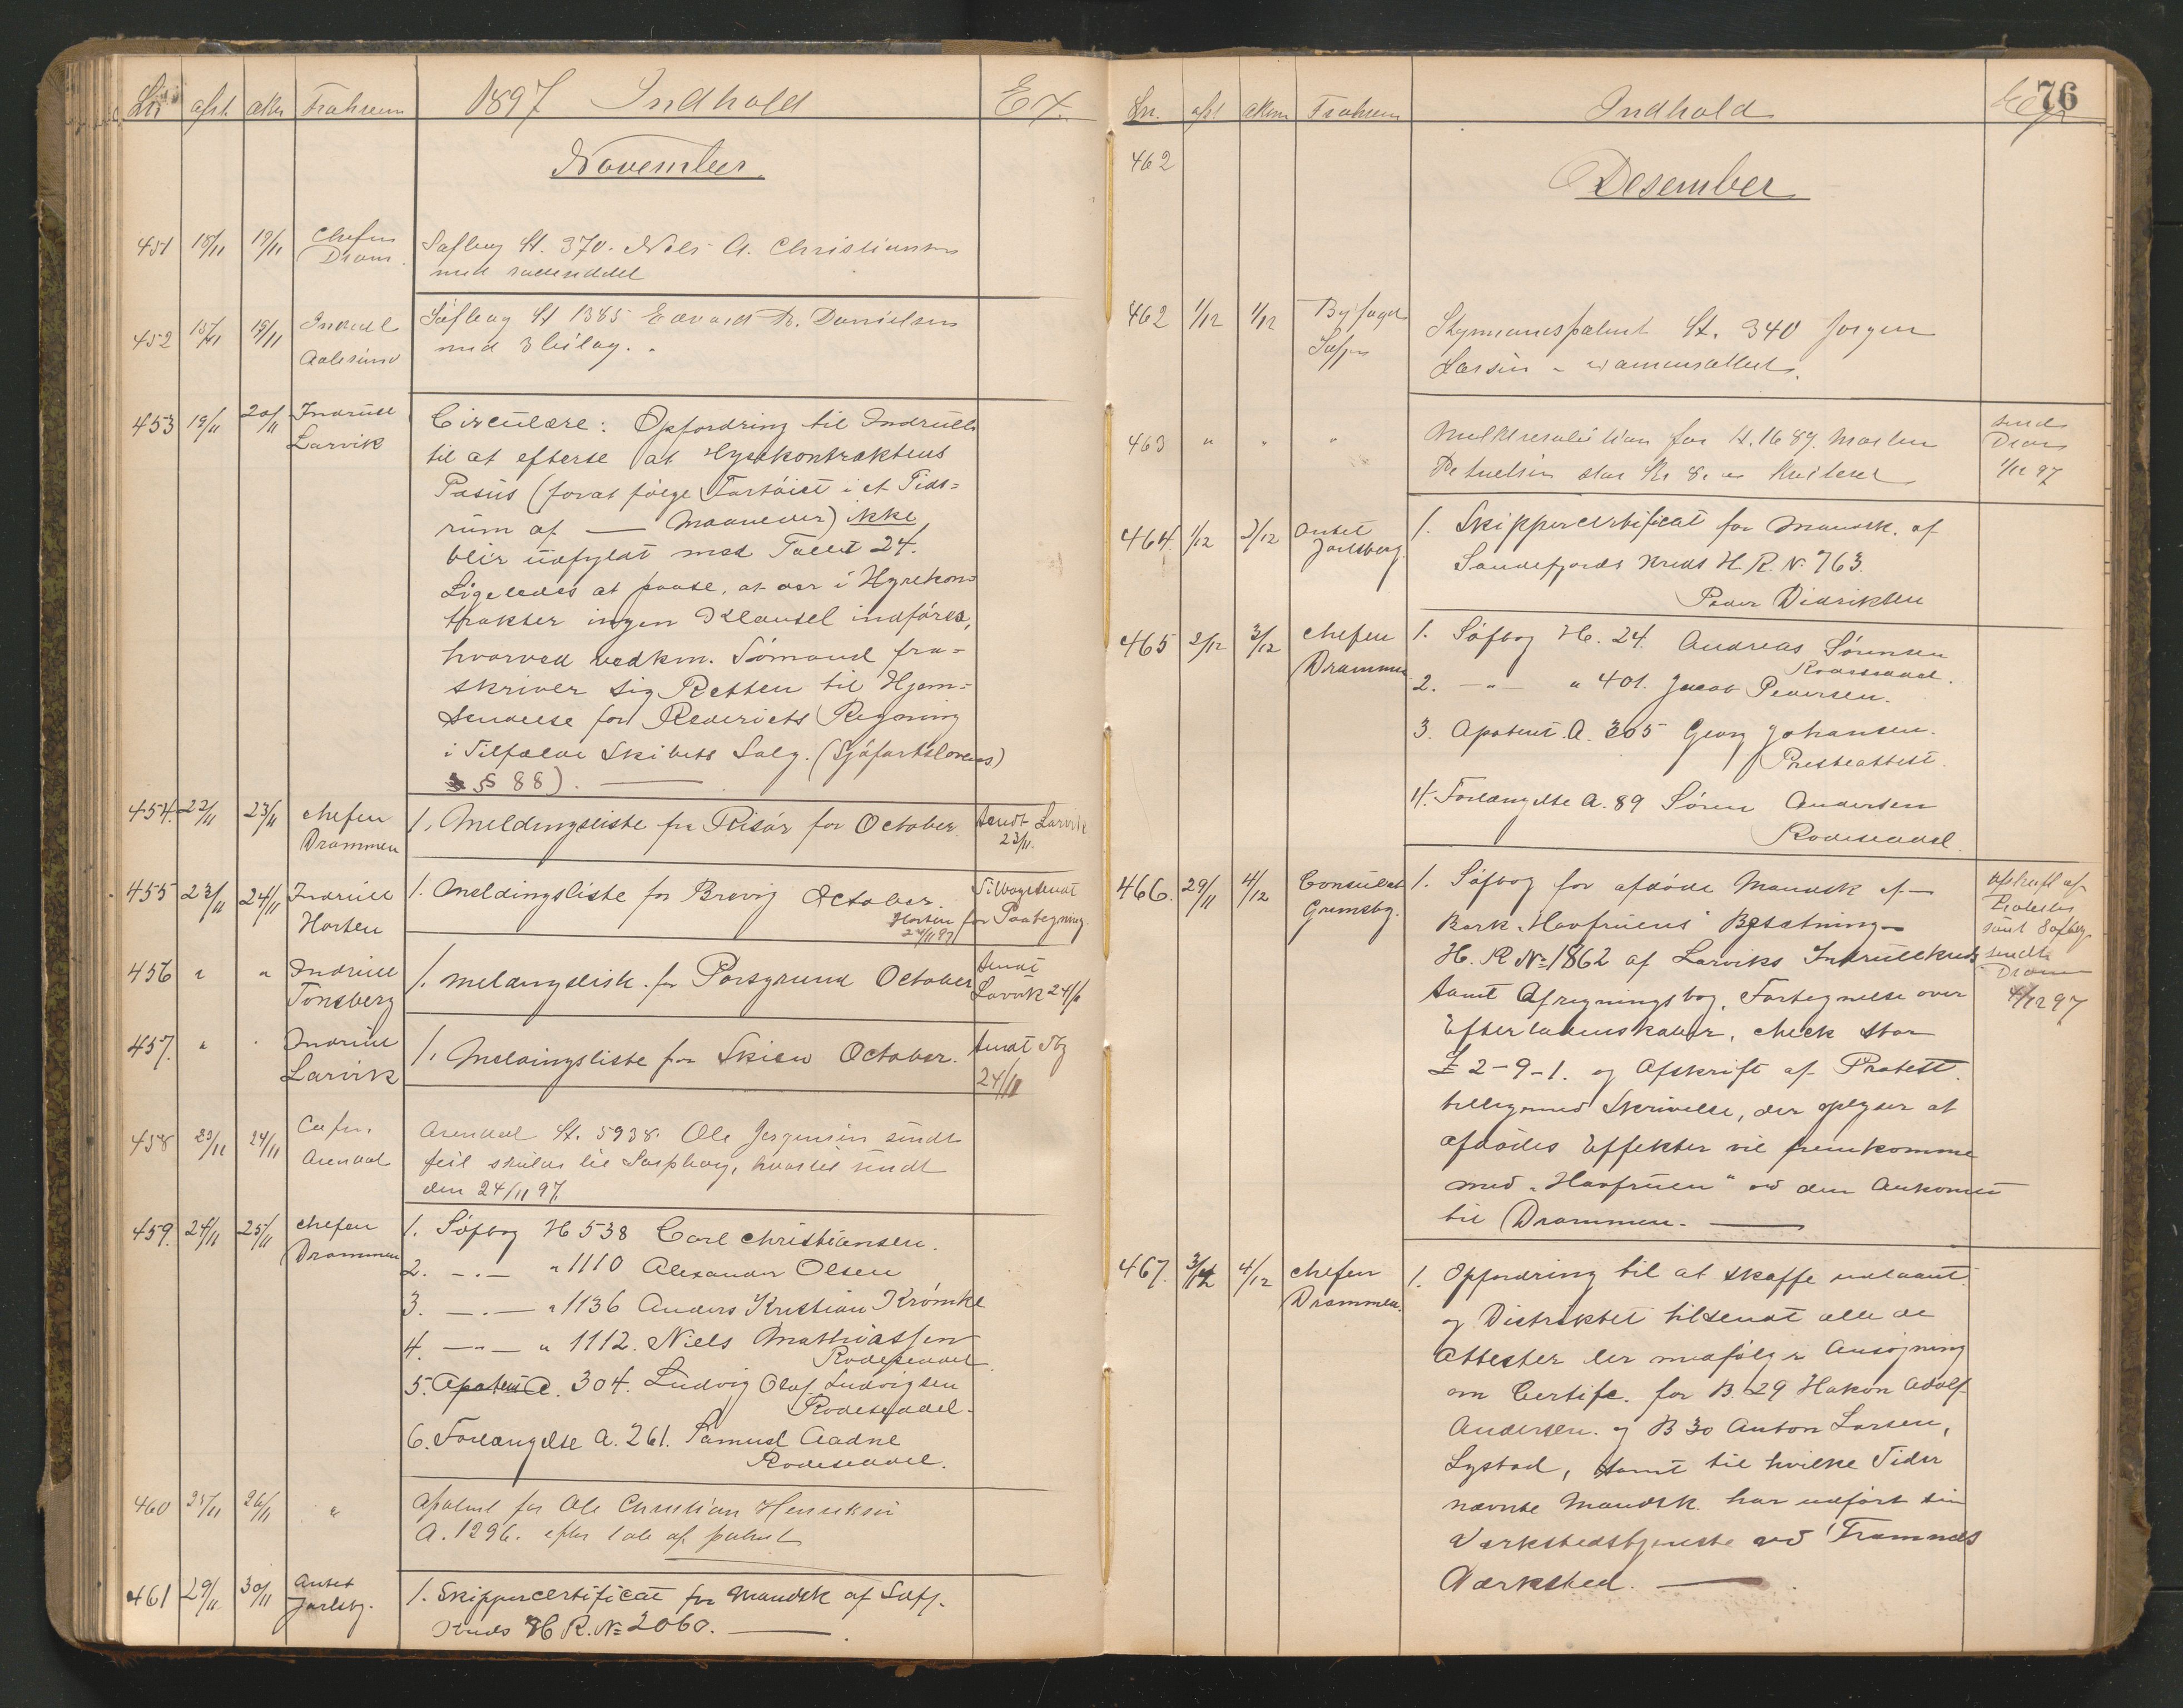 Ln afst. ank Frahvem 1897 Indhold Ex.
November.
451 18/11 19/11 Chefen Dram. Søfbog H. 370. Nils A. Christiansen
med rulleseddel
452 15/11 19/11 Indrull Aalesund Søfbog H 1385 Edvardt R. Danielsen
med 3 bilag.
453 19/11 20/11 Indrull Larvik Circulære: Opfordring til Indrull.
til at efterse at Hyrekontraktens
Pasus (forat følge Fartøiet i et Tids=
rum af — Maaneder) ikke
blir udfyldt med Tallet 24.
Ligeledes at paase, at der i Hyrekon=
trakter ingen Klausel indføres,
hvorved vedkm. Sømand fra=
skriver sig Retten til Hjem=
sendelse for Rederiets Regning
i Tilfælde Skibets Salg. (Sjøfartslovens)
§ 88).
454. 22/11 23/11 Chefen Drammen 1. Meldingsliste fra Risør for October. Sendt Larvik
23/11.
455 23/11 24/11 Indrull Horten 1. Meldingsliste for Brevig October. Tilbagesendt
Horten for Paategning.
24/11 97
456 " " Indrull Tønsberg 1. Meldingsliste for Porsgrund October Sendt
Larvik 24/11
457. " " Indrull Larvik 1. Meldingsliste fra Skien October. Sendt Tbg
24/11
458 23/11 24/11 Chefen Arendal Arendal H. 5938. Ole Jørgensen sendt
feil skulde til Sarpborg, hvortil sendt
den 24/11 97
459. 24/11 25/11 Chefen Drammen 1. Søfbog H 538 Carl Christiansen.
2. — " — " 1110 Alexander Olsen
3. — " — " 1136 Anders Kristian Krømke
4. — " — " 1112. Niels Mathiassen
Rodeseddel.
5. Apatent A. 304. Ludvig Olaf Ludvigsen
Rodeseddel.
6. Forlængelse A. 261. Samuel Aadne
Rodeseddel.
460 25/11 26/11 " Apatent for Ole Christian Henriksen
A. 1296. efter tab af patent
461 29/11 30/11 Antet Jarlsbg. 1. Skippercertificat for Mandsk af Safj.
Kreds H R. № 2060.
76
Ln. afst ankom Frahvem Indhold Ex
462
Desember
462 1/12 1/12 Byfoged Styrmandspatent H. 340 Jørgen
Larsen
463 " " " Mulktresolution for H. 1689. Morten sendt
Dram
1/12 97
464. 1/12 2/12 Antet Jarlsberg. 1. Skippercertificat for Mandsk. af
Sandefjords Kreds H. R. N. 763.
Peder Didriksen
465 2/12 3/12 Chefen Drammen 1. Søfbog H. 24. Andreas Sørensen
Rodeseddel.
2. — " — " 401. Jacob Pedersen.
3. Apatent. A. 305 Georg Johansen.
Presteattest.
4. Forlængelse A. 89 Søren Andersen
Rodeseddel.
466. 29/11 4/12 Consulat Grimsby. 1. Søfbog for afdøde Mandsk af
Bark "Havfruens" Besætning
H. R № 1862 af Larviks Indrullkreds
samt Afregningsbog, Fortegnelse over
Efterladenskaber, check stor
£ 2-9-1. og Afskrift af Protest
tilligemed Skrivelse, der oplyser at
afdødes Effekter vil fremkomme
med "Havfruen" ved den Ankomst
til Drammen.
Afskrift af
Protest
samt Søfbog
sendt
Dram
4/12 97
467. 3/12 4/12 Chefen Drammen. 1. Opfordring til at skaffe
og Distriktet tilsendt alle de
Attester der medfølger Ansøgning
om Certifc. for B. 29 Hakon Adolf
Andersen. og B 30 Anton Larsen,
Lystad, samt til hvilke Tider
nævnte Mandsk. har udført sin
Værkstedstjeneste ved Framnæs
Værksted.